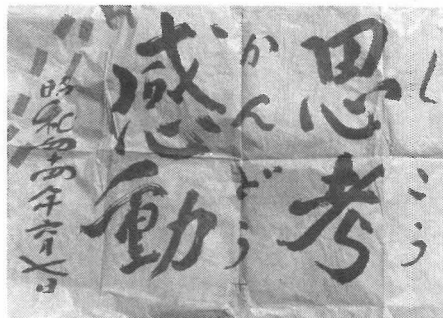 しこう
思考
かんどう
感動
昭和四十四年六月七日